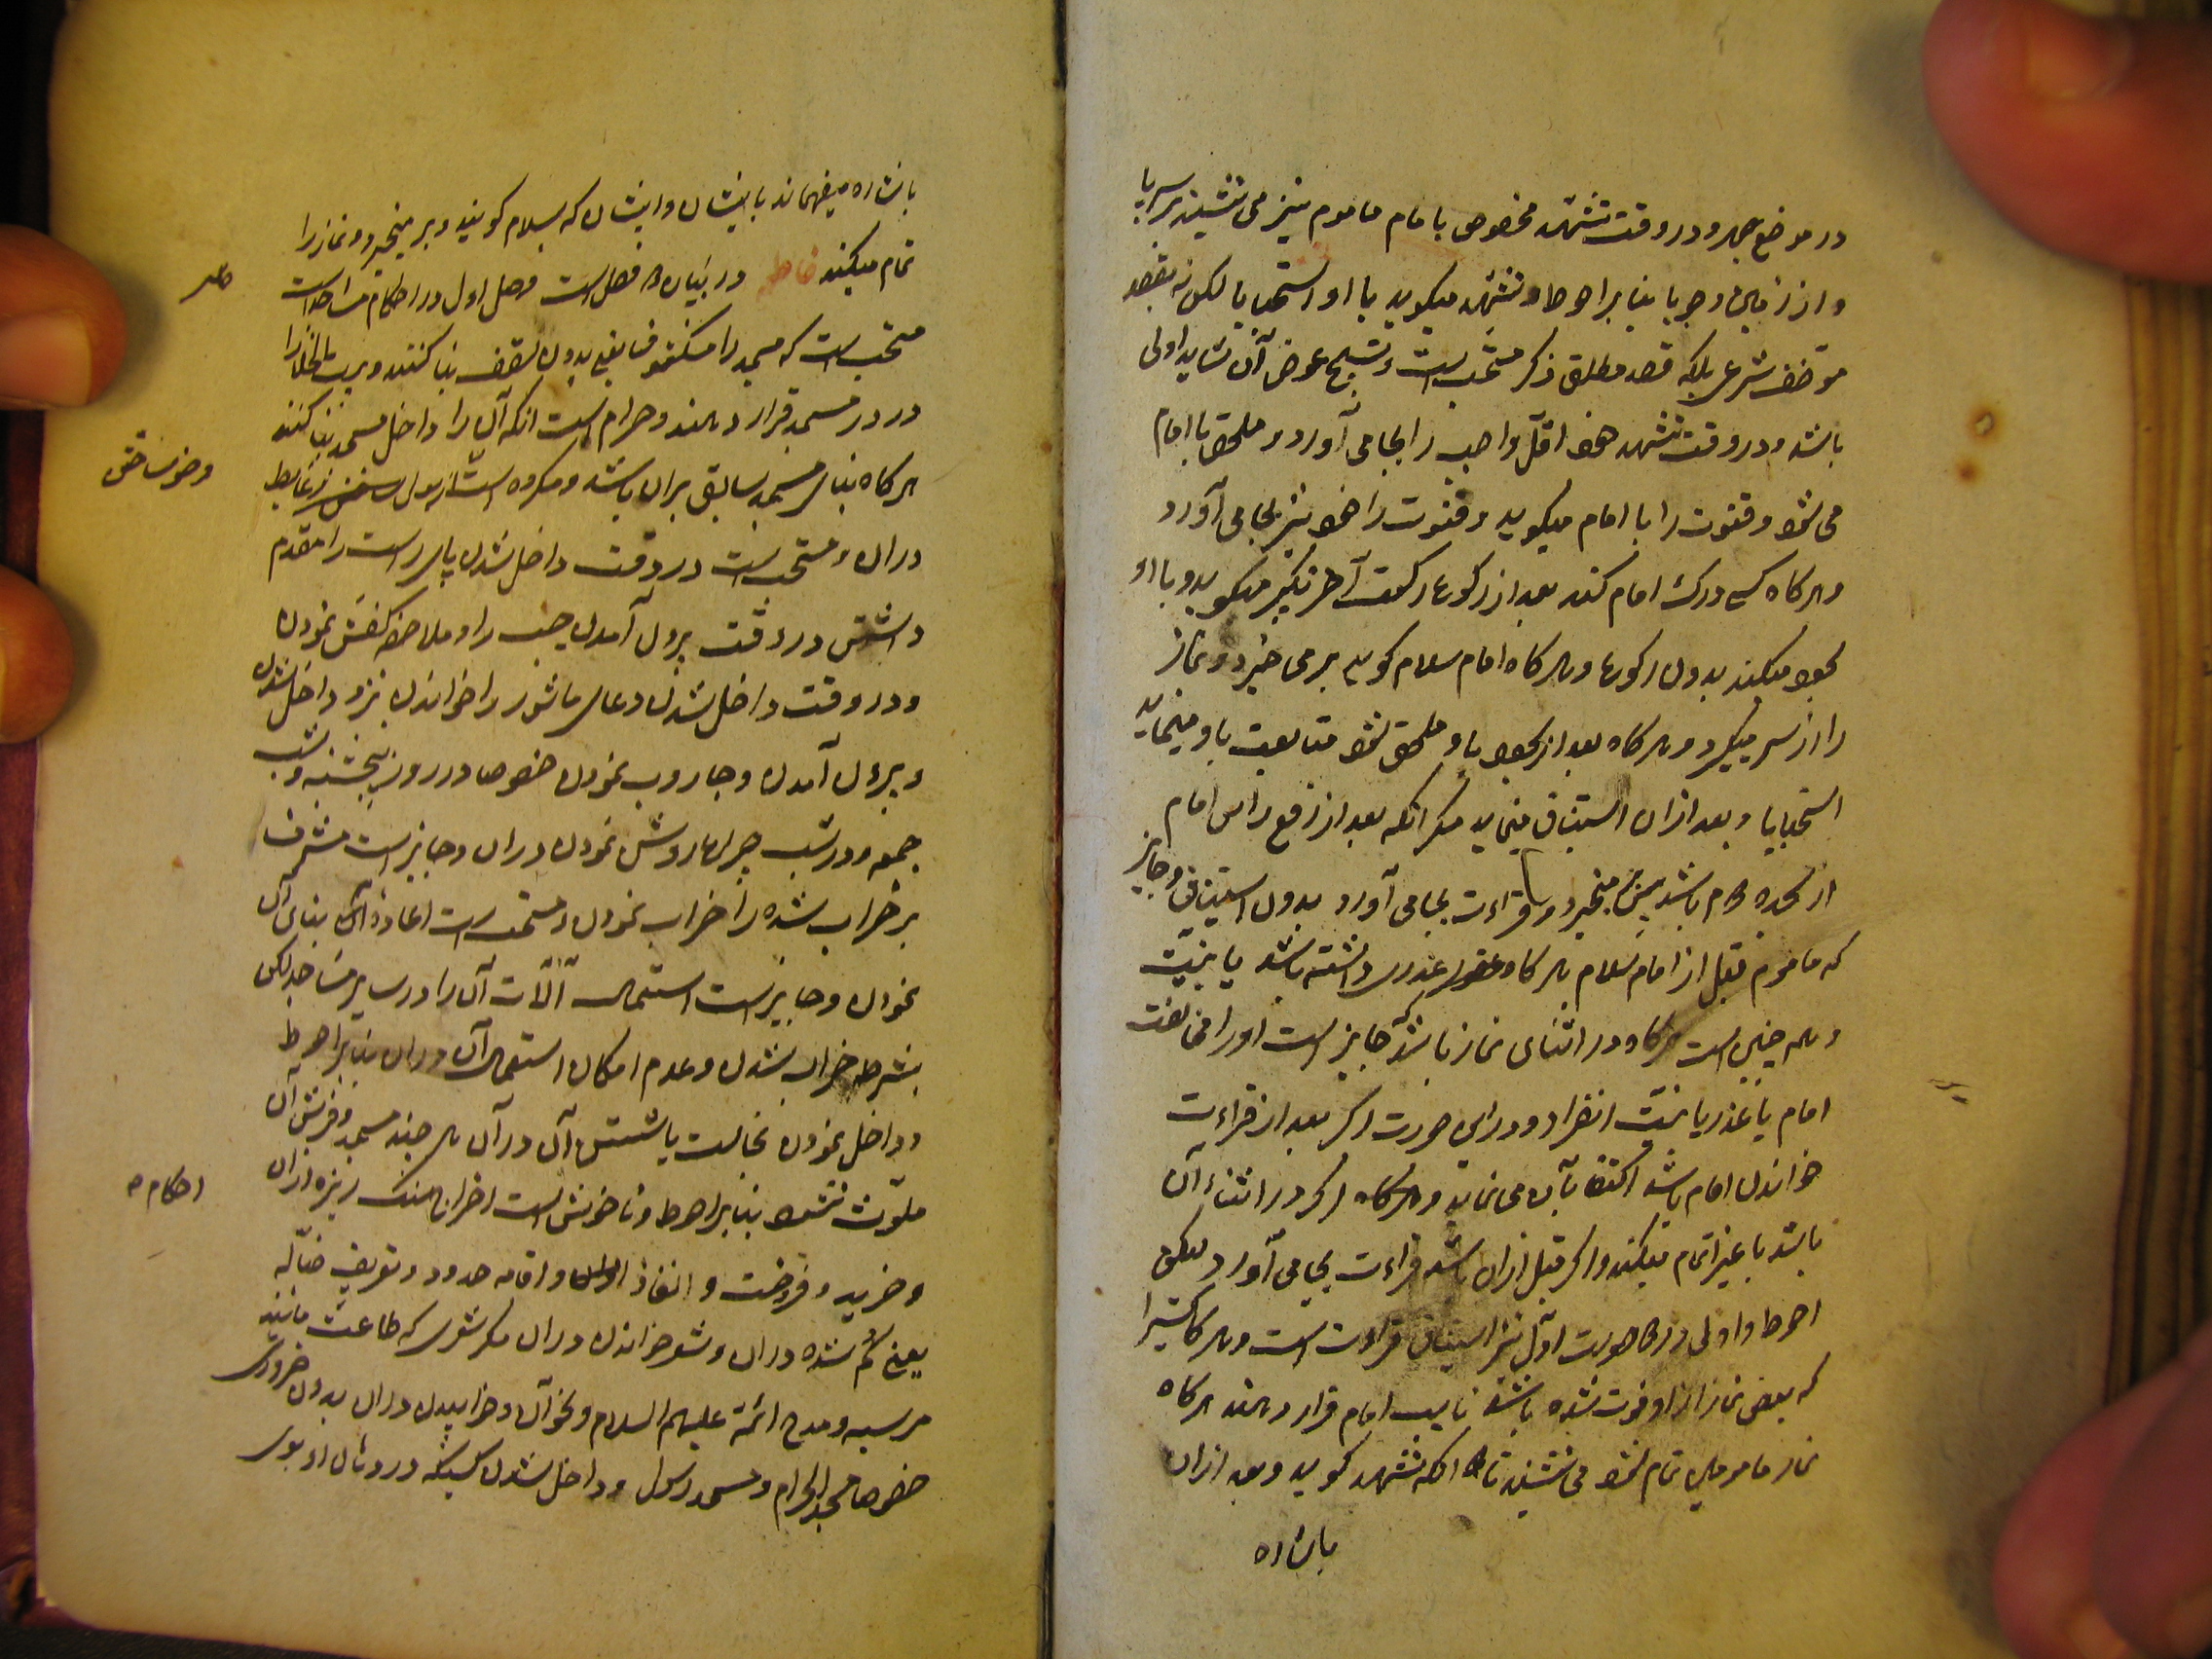 در موضع جهر و در وقت تشهد مخصوص بامام ماموم نیز می نشیند بر سر پا
و از زمین وجوبا بنا بر احوط و تشهد میکوید با او استحبابا لکن نه بقصد
موظف شرعی بلکه قصد مطلق ذکر مستحب است و تسبیح عوض آن شاید اولی
باشد و در وقت تشهد خود اقل واجب را بجا می آورد و ملحق با امام
می شود و قنوت را با امام میکوید و قنوت را خود نیز بجا می آورد
و هرکاه کسی درک امام کند بعد از رکوع رکعت آخر تکبیر میکوید و با او
سجود میکند بدون رکوع و هرکاه امام سلام کوید بر می خیزد و نماز
را از سر میکیرد و هرکاه بعد از سجود باو ملحق شود متابعت باو مینماید
استحبابا و بعد از ان استیناف مینماید مکر انکه بعد از رفع راس امام
از سجده دوم باشد پس بر میخیزد و قراءت بجا می آورد بدون استیناف و جایز
که ماموم قبل از امام سلام هرکاه عذری داشته باشد یا نیت
و همچنین است هرکاه در اثنای نماز باشد که جایز است او را مخالفت
امام با عذر یا نیت انفراد و در این صورت اکر بعد از قراءت
خواندن امام باشد اکتفا بآن می نماید و هرکاه اکر در اثناء آن
باشد با غیر اتمام میکند و اکر قبل از ان باشد قراءت بجا می آورد لیکن
احوط و اولی در دو صورت اول نیز استیناف قراءت است و هرکاه کسیرا
که بعض نماز از او فوت شده باشد نایب امام قرار دهند هرکاه
نماز مامومین تمام شود می نشیند تا انکه تشهد کوید و بعد از ان
باشاره
باشاره میفهماند بایشان و ایشان که سلام کویند و بر میخیزد و نماز را
تمام میکند خاتمه در بیان دو فصل است فصل اول در احکام مساجد است
مستحب است که مسجد را مکشوف یعنی بدون سقف بنا کنند و بیت الخلا را
در در مسجد قرار دهند و حرام است انکه آن را داخل مسجد بنا کنند
هرکاه بنای مسجد سابق بر ان باشد و مکروه است از بول و غایط
وضو ساختن
در ان و مستحب است در وقت داخل شدن پای راست را مقدم
داشتن و در وقت بیرون آمدن چپ را و ملاحظه کفش نمودن
و در وقت داخل شدن دعای ماثور را خواندن نزد داخل شدن
و بیرون آمدن و جاروب نمودن خصوصا در روز پنجشنبه و شب
جمعه و در شب چراغ روشن نمودن در ان و جایز است مشرف
بر خراب شده را خراب نمودن و مستحب است اعاده بنای آن
نمودن و جایز است استعمال آلات آن را در سایر مساجد لکن
بشرط خراب شدن و عدم امکان استعمال آن در ان بنا بر احوط
و داخل نمودن نجاست یا شستن آن در آن هر چند مسجد و فرش آن
ملوث نشود بنا بر احوط و ناخوش است اخراج سنک ریزه از ان
و خرید و فروخت و انفاذ احکام و اقامه حدود و تعریف ضاله
احکام
یعنی کم شده در ان و شعر خواندن در ان مکر شعری که طاعت مانند
مرثیه و مدح ائمة علیهم السلام و نحو آن و خوابیدن در ان بدون ضروری
خصوصا مسجد الحرام و مسجد رسول و داخل شدن کسیکه در دهان او بوی